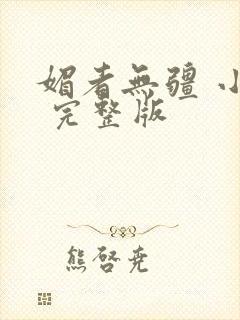 媚者無疆 小
完整版
熊啓堯